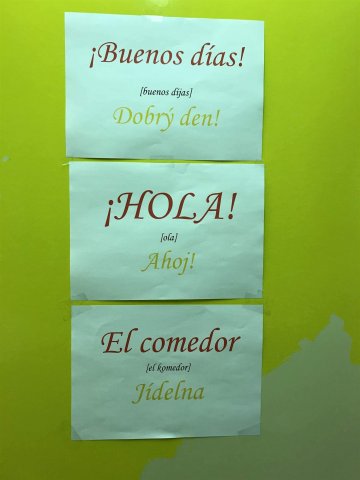 ¡Buenos días!
[buenos dijas]
Dobrý den!
¡HOLA!
[ola]
Ahoj!
El comedor
[el komedor]
Jídelna